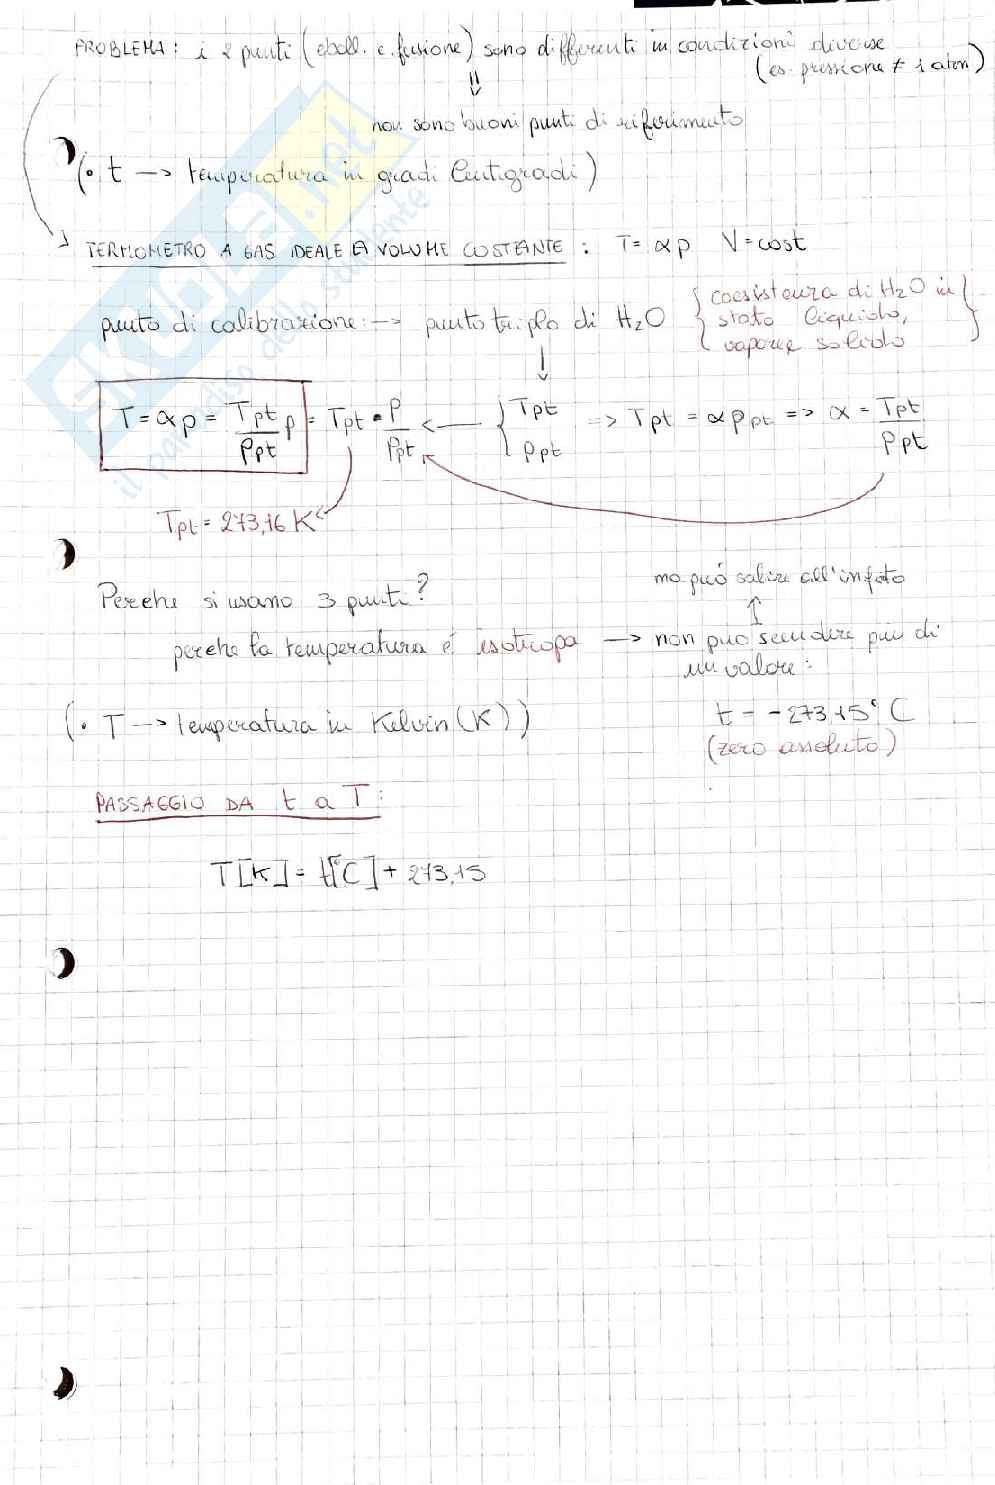 PROBLEMA: i 2 punti (eboll. e fusione) sono differenti in condizioni diverse
(es. pressione ≠ 1 atm)
⇓
non sono buoni punti di riferimento
(• t → temperatura in gradi Centigradi)
TERMOMETRO A GAS IDEALE A VOLUME COSTANTE : T = αp V = cost
punto di calibrazione: → punto triplo di H₂O { coesistenza di H₂O in stato liquido, vapore e solido }
T = αp = Tpt/ppt p = Tpt • p/ppt ← { Tpt ppt ⇒ Tpt = αppt ⇒ α = Tpt/ppt
Tpt = 273,16 K
ma può salire all'infito
Perche si usano 3 punti?
perche la temperatura é isotropa → non può scendire più di
un valore:
(• T → temperatura in Kelvin (K))
t = -273,15° C
(zero assoluto)
PASSAGGIO DA t a T:
T[K] = t[°C] + 273,15
SKUOLA.net
il paradiso dello studente